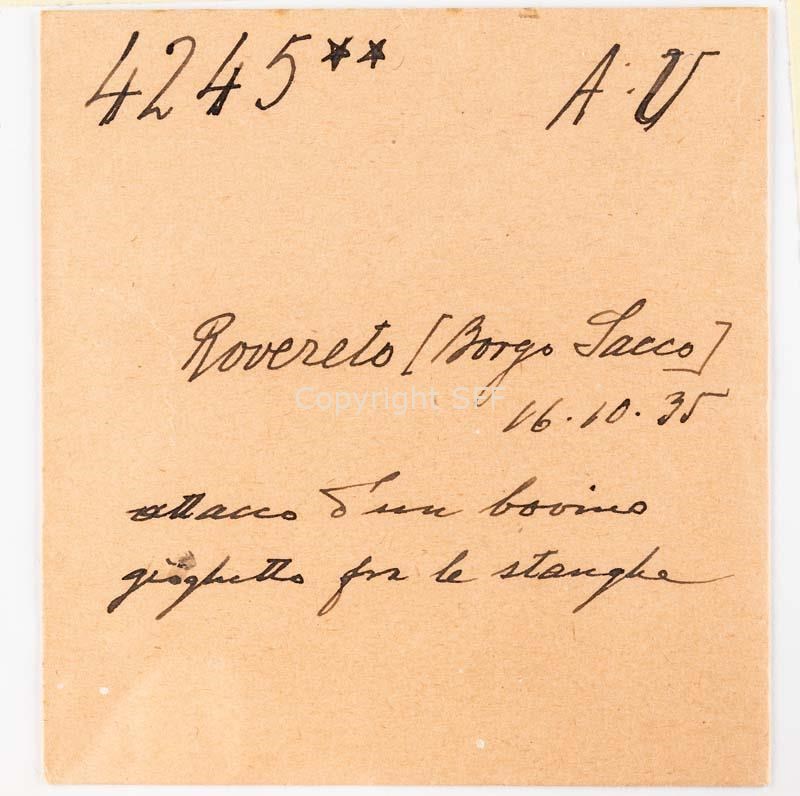 4245** A. U
Rovereto [Borgo Sacco]
Copyright SFF
16. 10. 35
attacco d'un bovino
gioghetto fra le stanghe